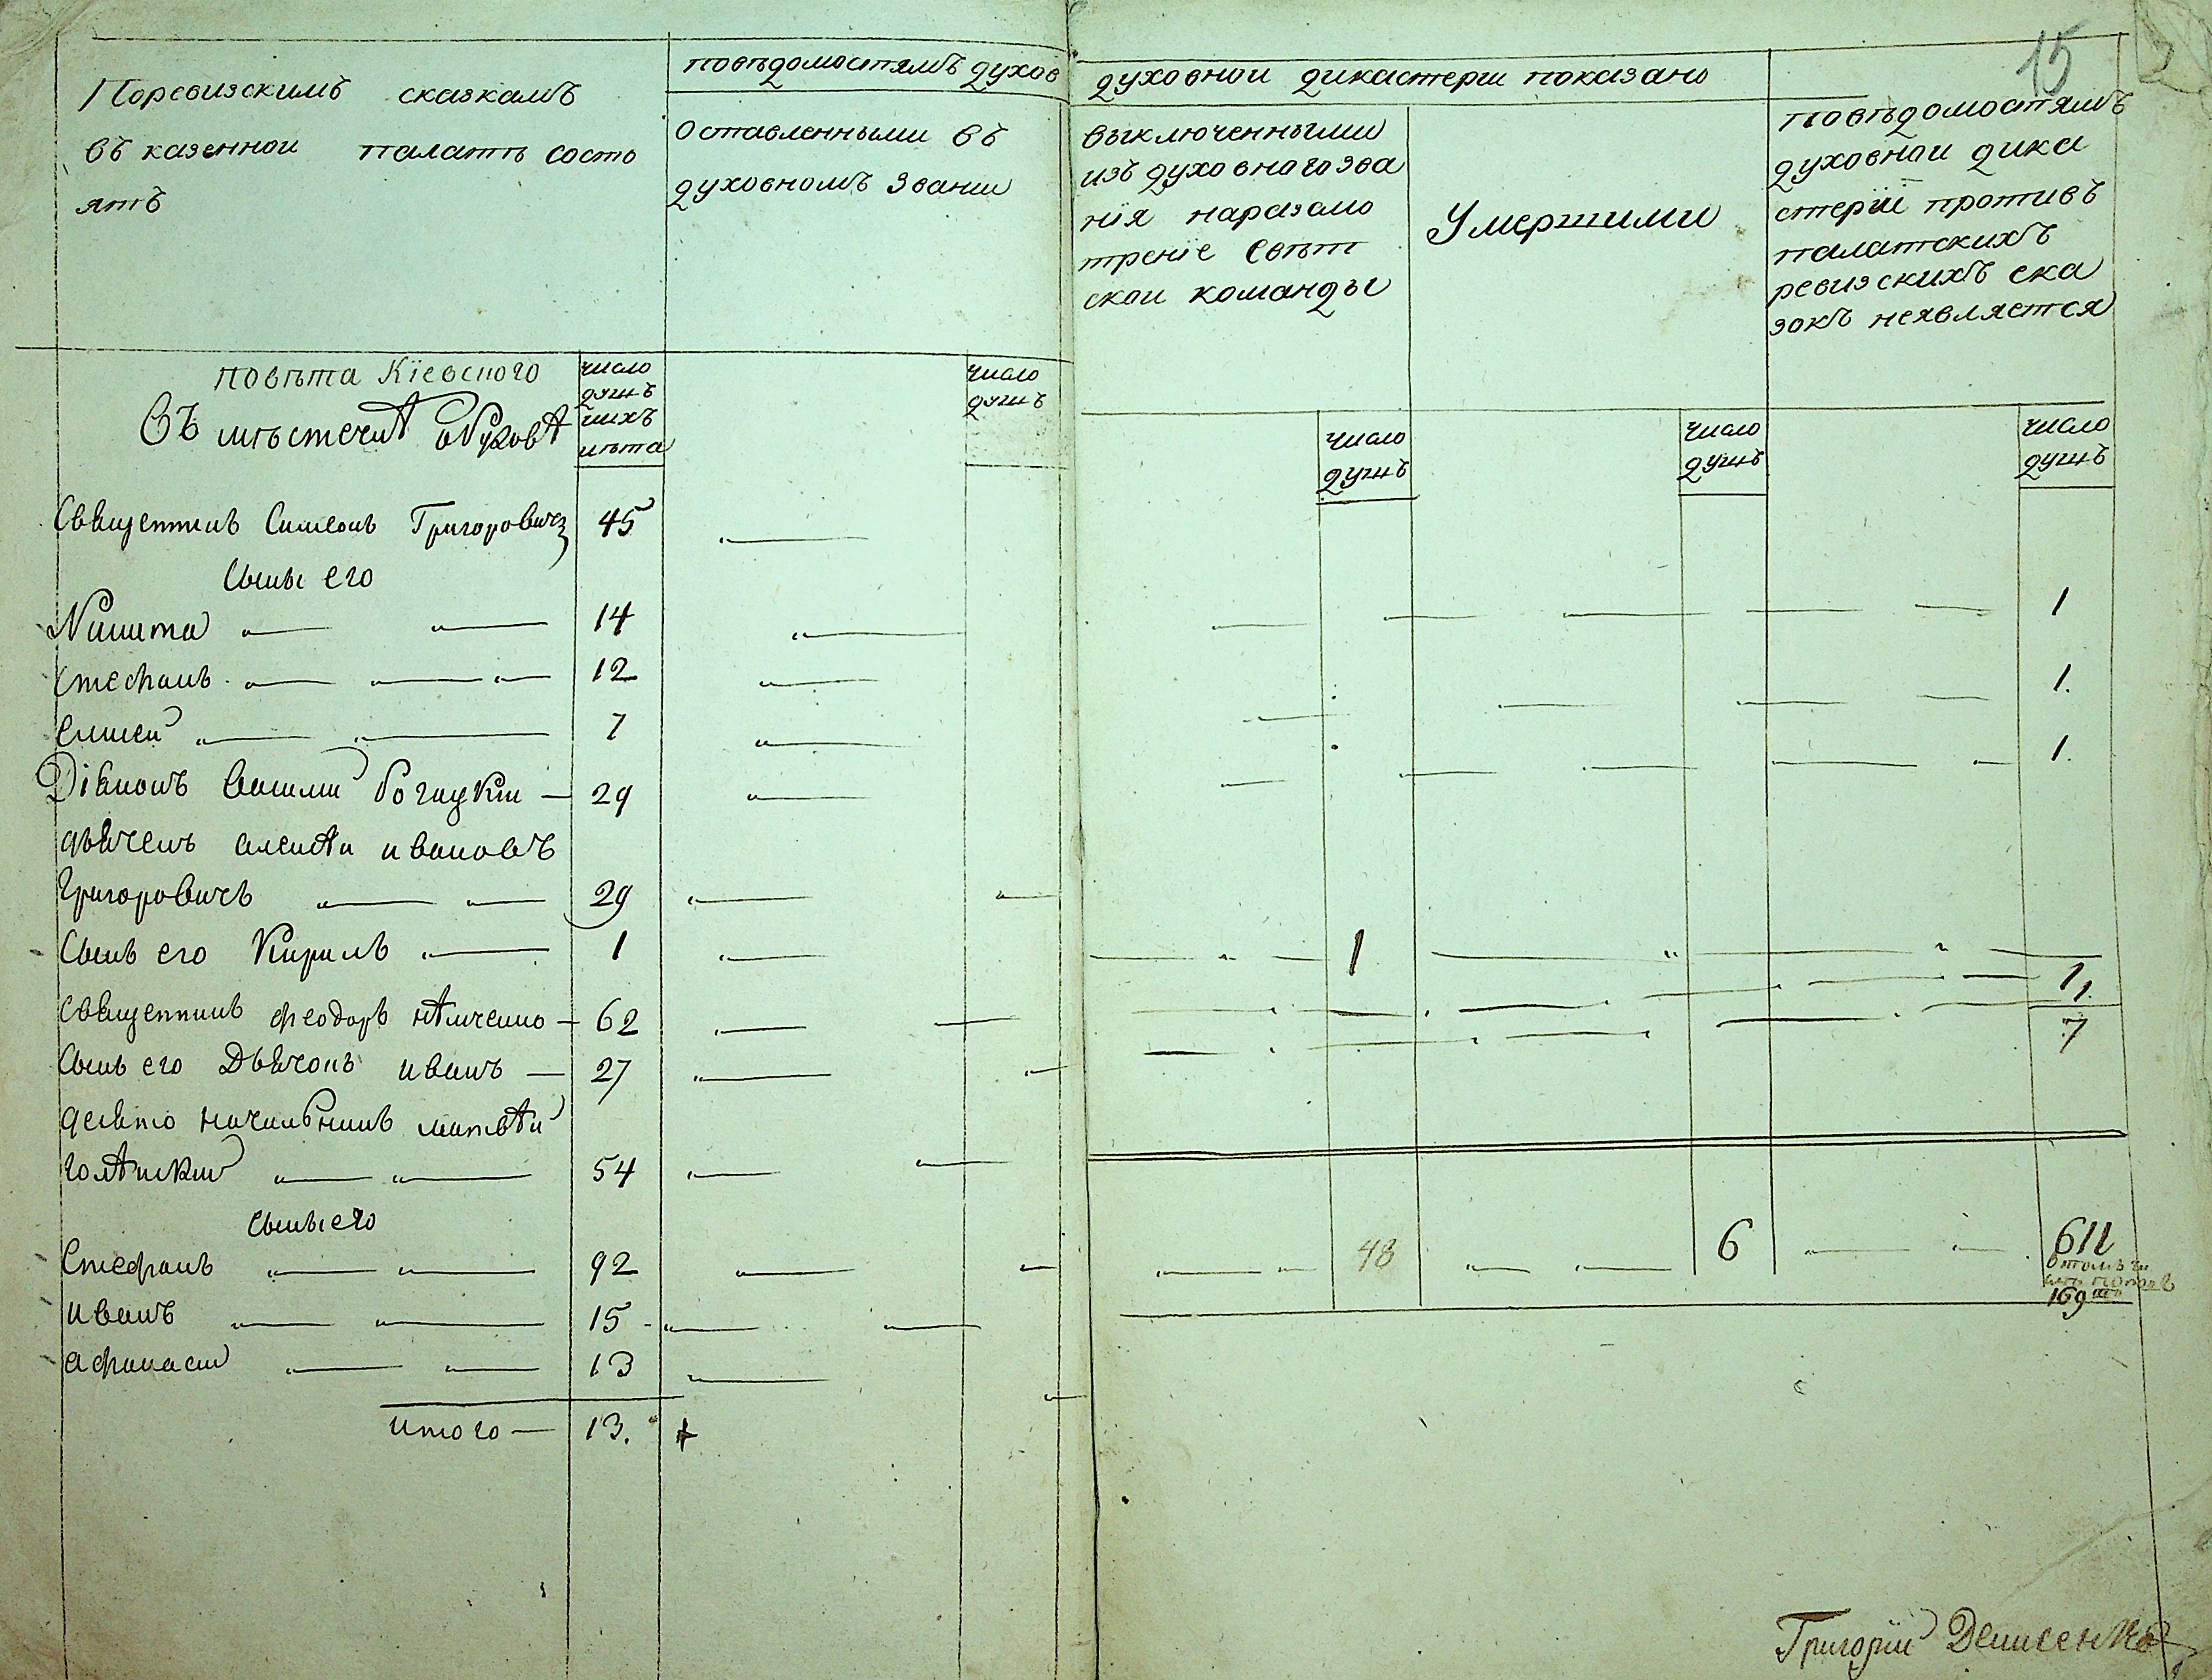 15
Поревизскимъ сказкамъ
въ казеннои палатѣ состо
ятъ
повѣдомостямъ духов
Оставленными въ
духовномъ звании
духовнои дикастерии показано
выключенными
изъ духовнаго зва
нїя наразсмо
тренїе свѣт
скои команды
Умершими
повѣдомостямъ
духовнои дика
стерїи противъ
палатскихъ
ревизскихъ ска
зокъ неявляется
повѣта Кїевского
Въ мѣстечкѣ
число
душъ
ихъ
лѣта
число
душъ
число
душъ
число
душъ
число
душъ
Священникъ Симеонъ Григоровичъ 45
Сыны его
Никита 14
Стефанъ 12
елисеи 7
Діяконъ Василии 29
дьячекъ алексѣи ивановъ
Григоровичъ 29
Сынъ его Кирилъ 1
Священникъ феодоръ нѣмченко 62
Сынъ его Дьячокъ иванъ 27
десято началникъ матвѣи
54
Сыны его
Стефанъ 92
иванъ 15
афанасии 13
итого 13.
1
1.
1.
1
1
7
48 6 611
169
Григорїи Денисенко